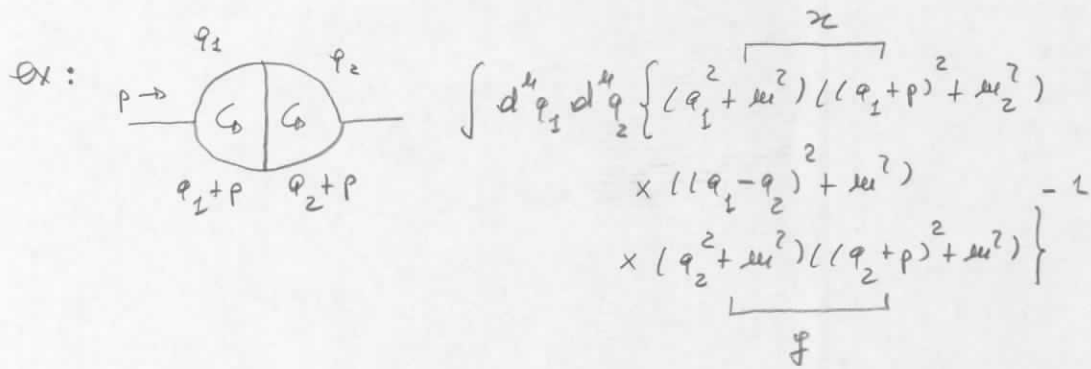 ex :
p →
q₁
q₂
q₁+p
q₂+p
x
∫ d⁴q₁ d⁴q₂ { (q₁² + m²) ((q₁+p)² + m₂²)
× ((q₁-q₂)² + m²)
× (q₂² + m²) ((q₂+p)² + m²) }⁻¹
y